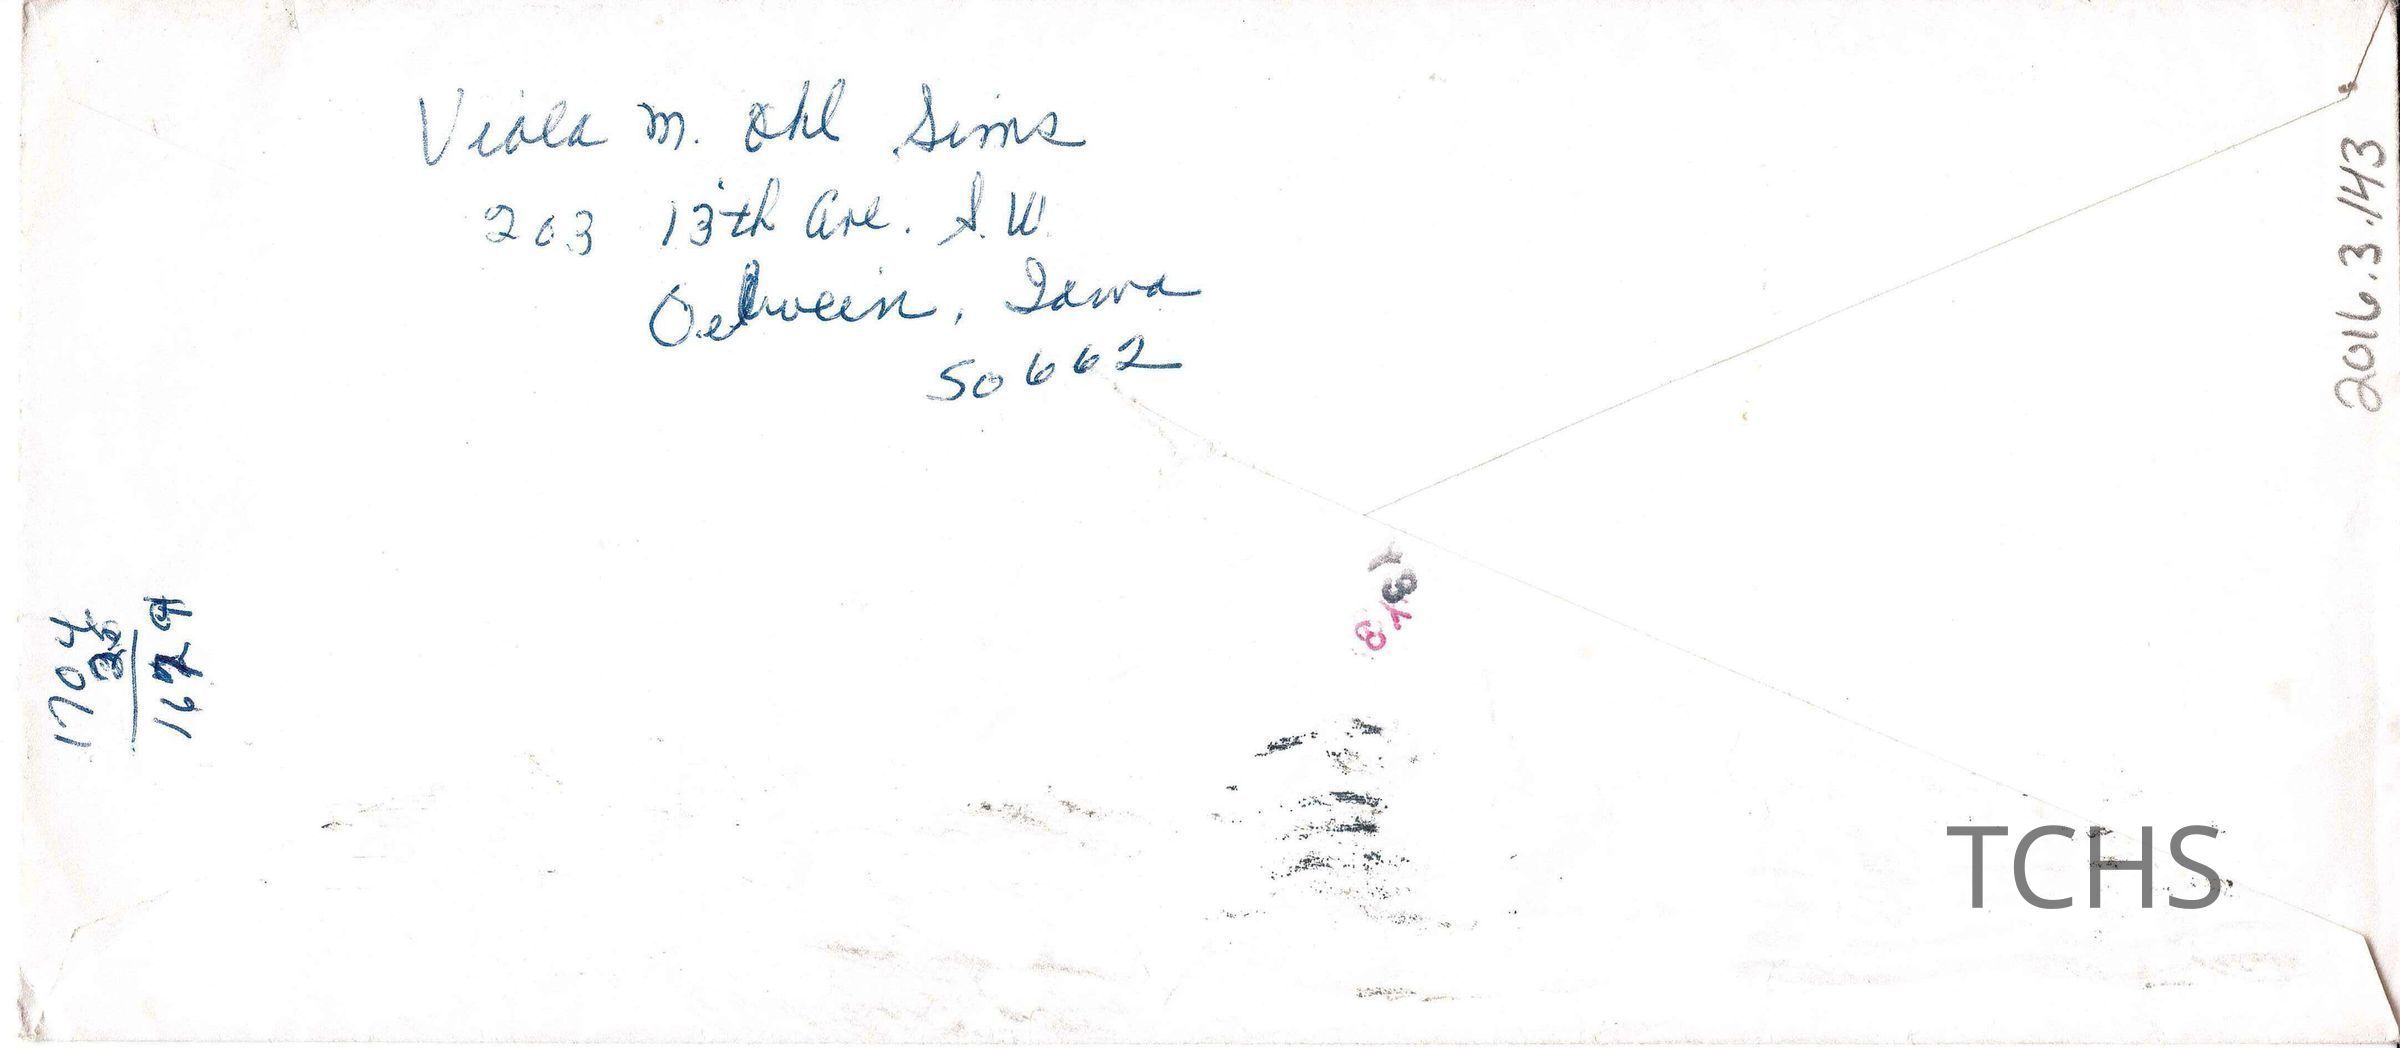 Viola M. Ohl Sims
203 13th Ave. S.W.
Oelwein, Iowa
50662
2016.3.143
1704
1679
TCHS